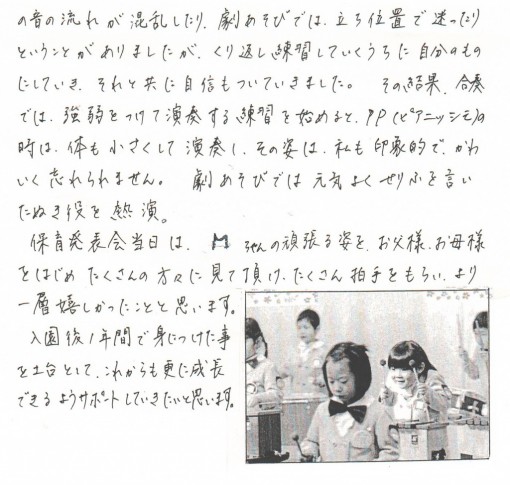 の音の流れが混乱したり、劇あそびでは、立ち位置で迷ったり
ということがありましたが、くり返し練習していくうちに自分のもの
にしていき、それと共に自信もついていきました。 その結果、合奏
では、強弱をつけて演奏する練習を始めると、PP(ピアニッシモ)の
時は、体も小さくして演奏し、その姿は、私も印象的で、かわ
いく忘れられません。 劇あそびでは元気よくせりふを言い
たぬき役を熱演。
保育発表会当日は、 Mちゃんの頑張る姿を、お父様、お母様
をはじめたくさんの方々に見て頂け、たくさん拍手をもらい、より
一層嬉しかったことと思います。
入園後1年間で身につけた事
を土台として、これからも更に成長
できるようサポートしていきたいと思います。